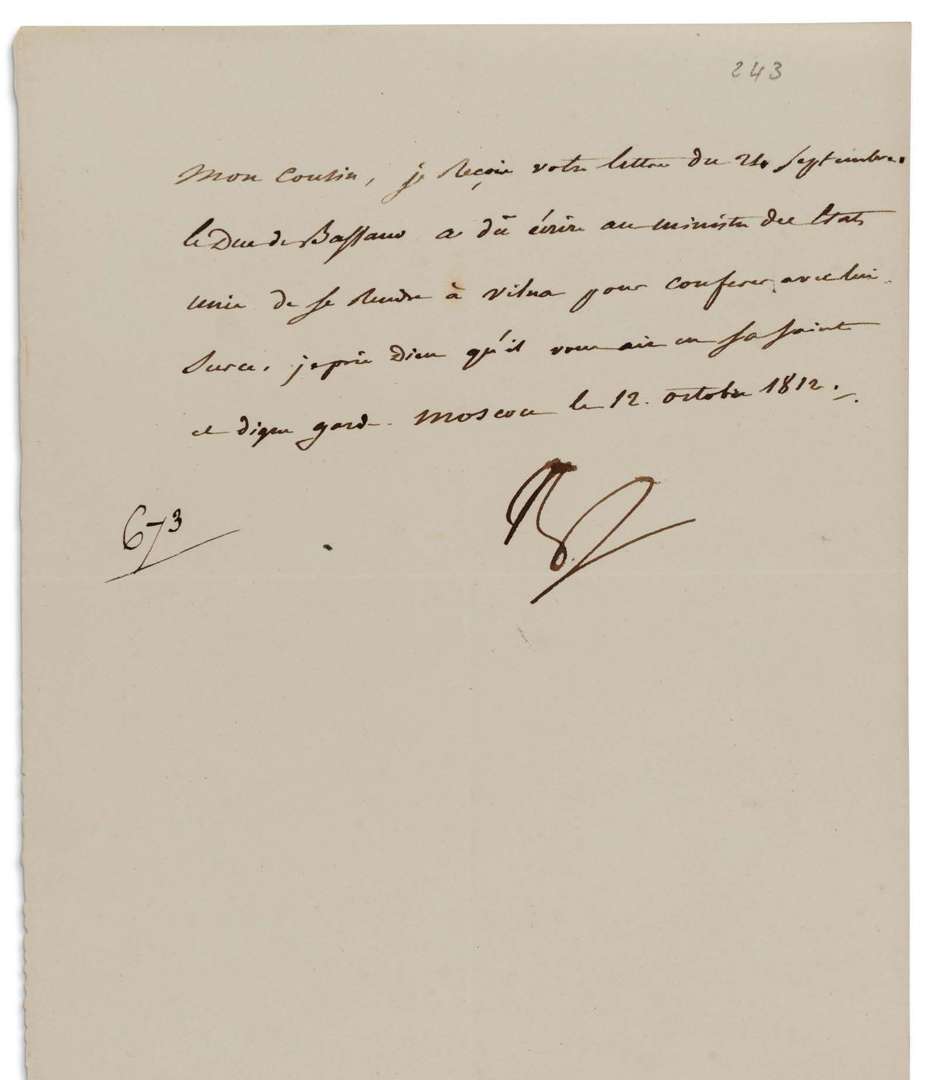 243
Mon cousin, je Reçois votre lettre du 24 Septembre.
le Duc de Bassano a dû écrire au ministre des Etats
unis de se Rendre à vilna pour conferer avec lui.
Surce, je prie Dieu qu'il vous ait en sa sainte
et digne garde. Moscou le 12. octobre 1812.
673